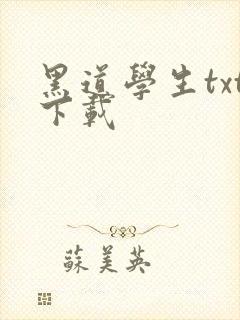 黑道學生txt
下載
蘇美英